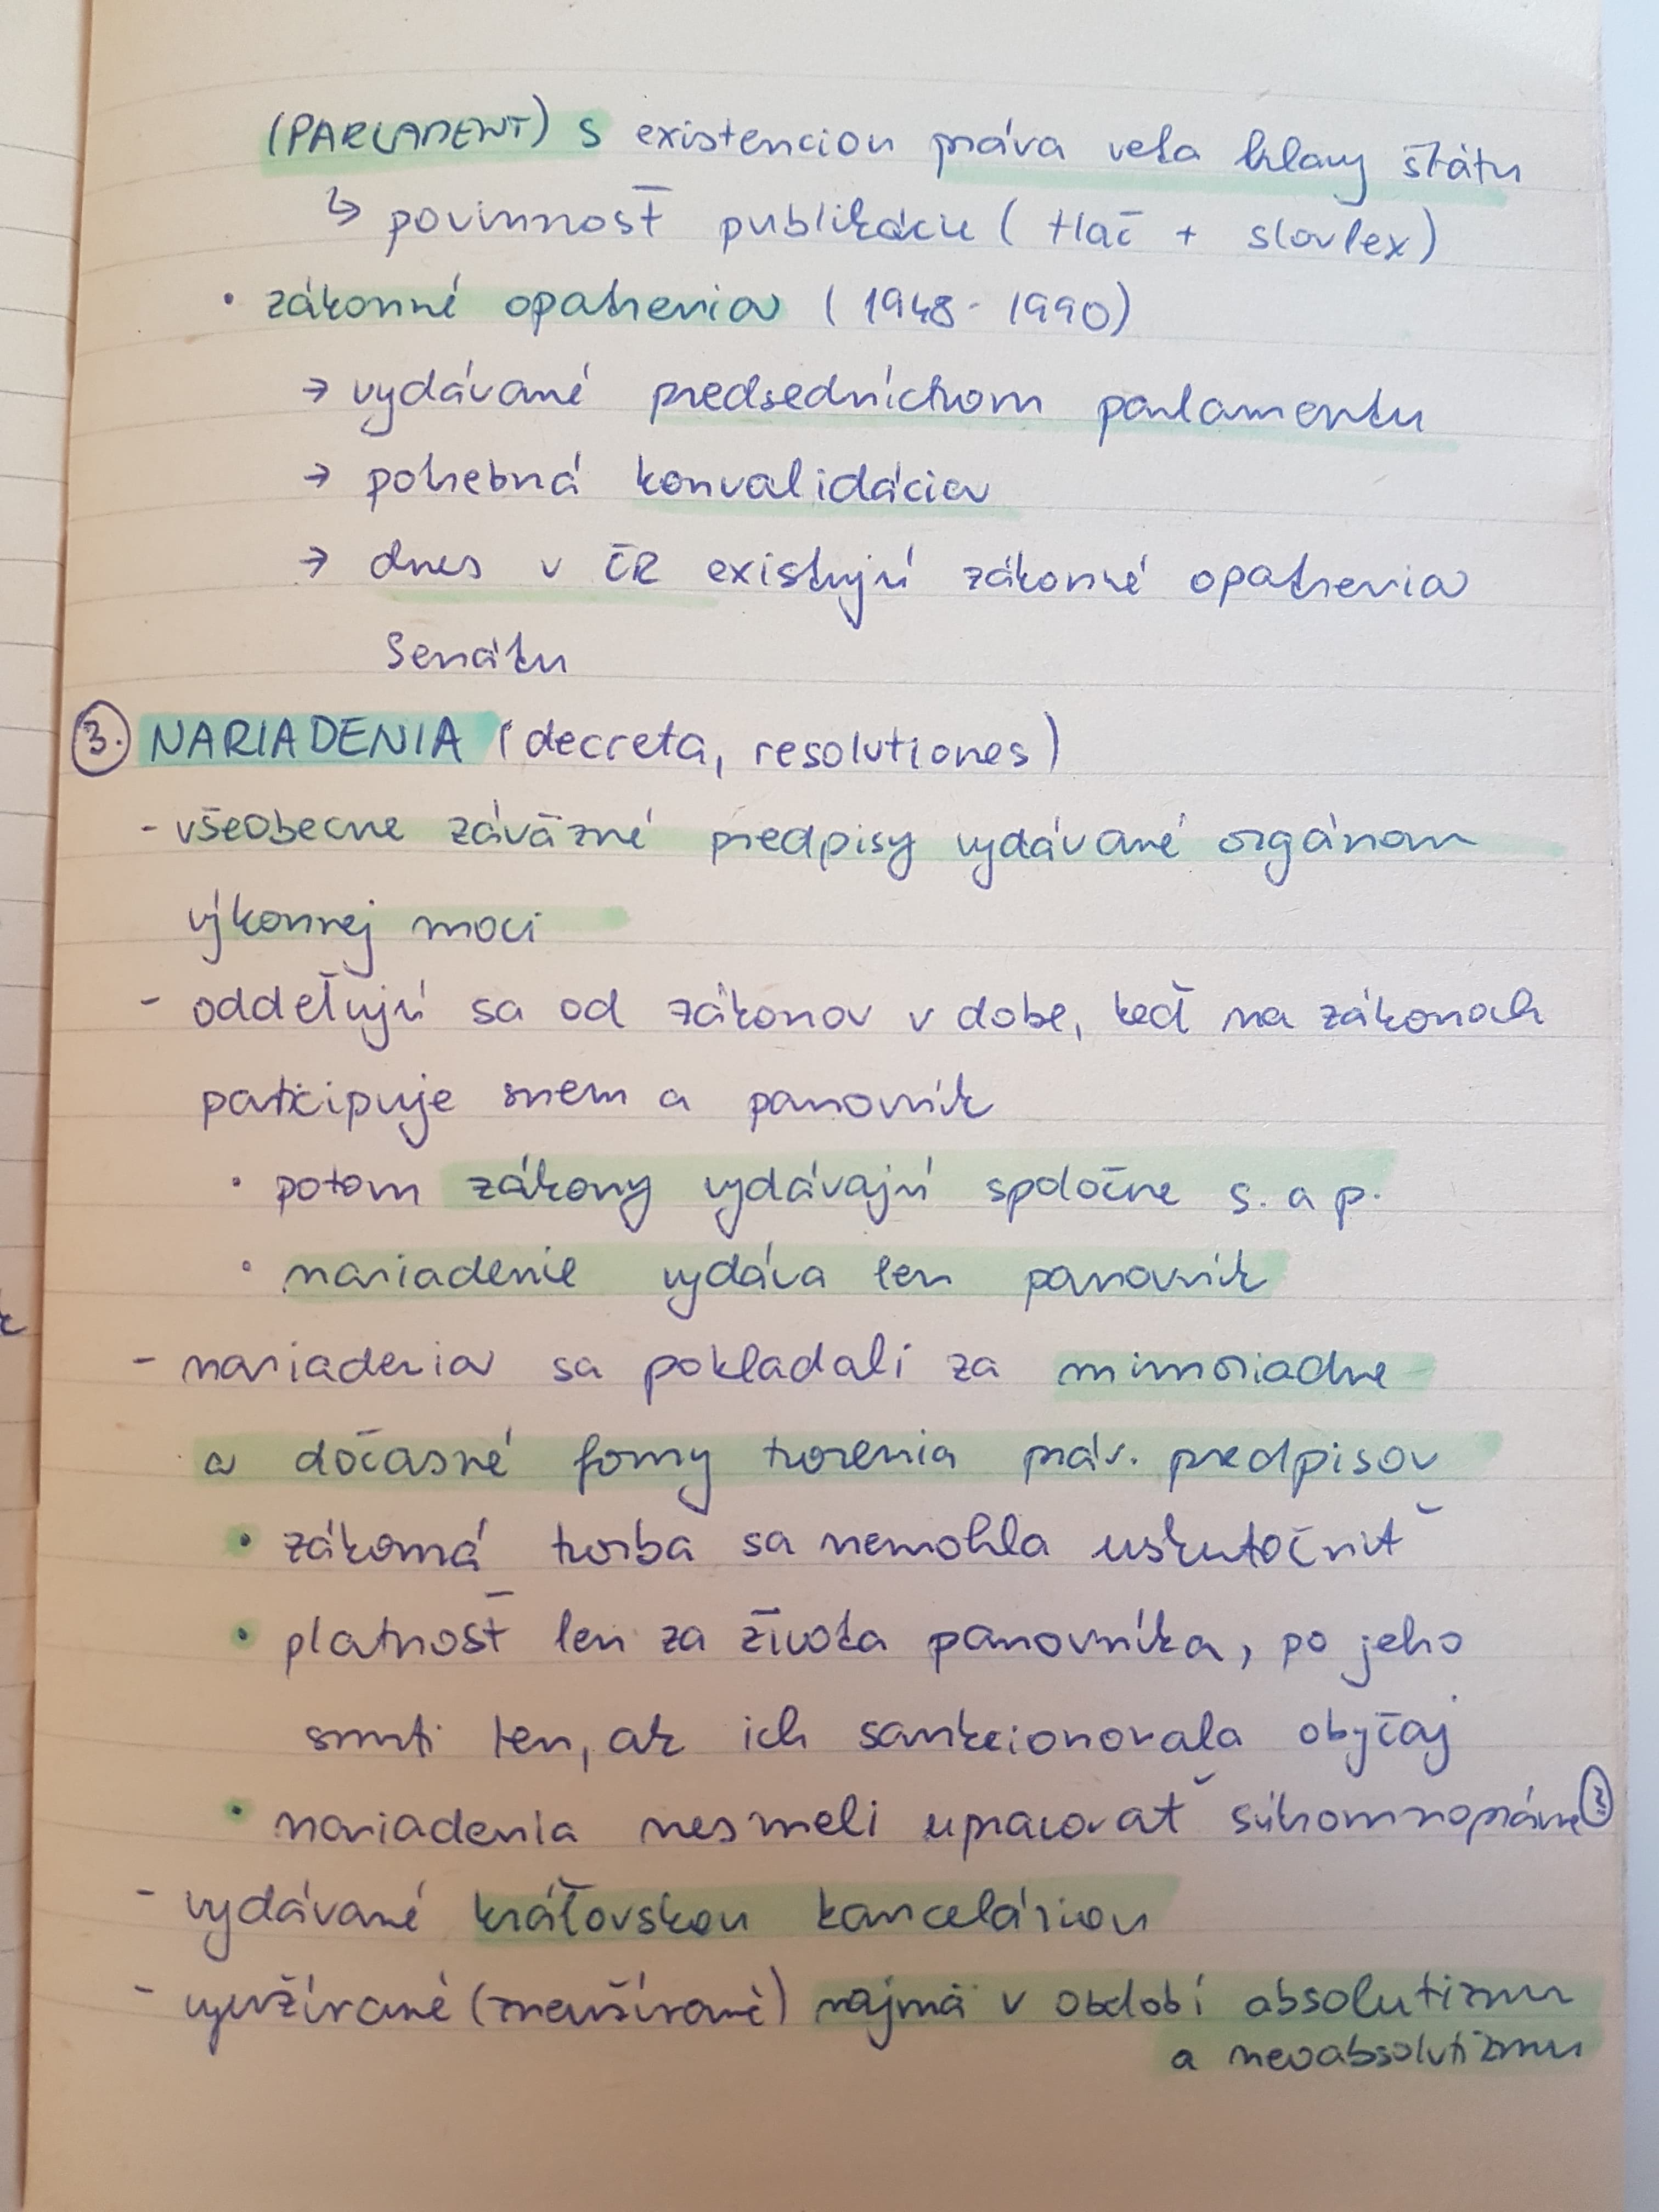 (PARLAMENT) s existenciou práva veta hlavy štátu
↳ povinnosť publikácie ( tlač + slovlex)
• zákonné opatrenia ( 1948 - 1990)
→ vydávané predsedníctvom parlamentu
→ potrebná konvalidácia
→ dnes v ČR existujú zákonné opatrenia
Senátu
3. NARIADENIA (decreta, resolutiones)
- všeobecne záväzné predpisy vydávané orgánom
výkonnej moci
- oddeľujú sa od zákonov v dobe, keď na zákonoch
paticipuje snem a panovník
• potom zákony vydávajú spoločne s. a p.
• nariadenie vydáva len panovník
- nariadenia sa pokladali za mimoriadne
a dočasné formy tvorenia práv. predpisov
• zákonná tvorba sa nemohla uskutočniť
• platnosť len za života panovníka, po jeho
smrti len, ak ich sankcionovala obyčaj
• nariadenia nesmeli upracovať súkromnoprávne ?
- vydávané kráľovskou kanceláriou
- využívané (zneužívané) najmä v období absolutizmu
a neoabsolutizmu